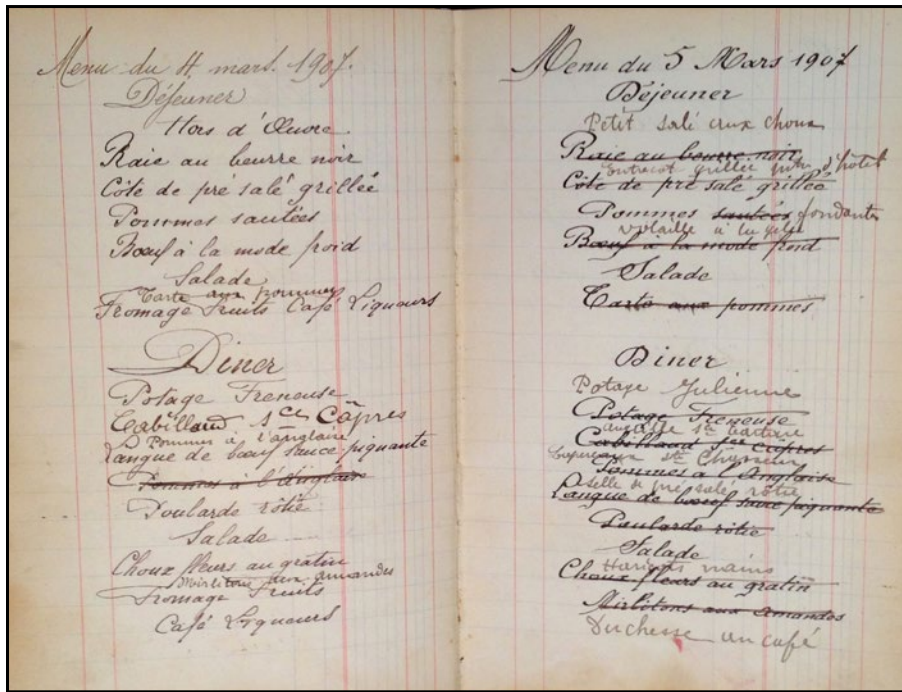 Menu du 4 mars. 1907.
Déjeuner
Hors d'Œuvre
Raie au beurre noir
Côte de pré salé grillée
Pommes sautées
Bœuf à la mode froid
Salade
Tarte aux pommes
Fromage Fruits Café Liqueurs
Diner
Potage Freneuse
Cabillaud sce Câpres
Pommes à l'anglaise
Langue de bœuf sauce piquante
Pommes à l'Anglaise
Poularde rôtie
Salade
Choux fleurs au gratin
Mirlitons aux amandes
Fromage Fruits
Café Liqueurs
Menu du 5 Mars 1907
Déjeuner
Petit salé aux choux
Raie au beurre noir
Entrecot grillée d'hôtel
Côte de pré salé grillée
Pommes sautées fondantes
volaille à la gelée
Bœuf à la mode froid
Salade
Tarte aux pommes
Diner
Potage Julienne
Potage Freneuse
anguille sce tartare
Cabillaud sce câpres
sce Chasseur
Pommes à l'Anglaise
Selle de pré salé rôtie
Langue de bœuf sauce piquante
Poularde rôtie
Salade
Haricots
Choux fleurs au gratin
Mirlitons aux amandes
Duchesse au café